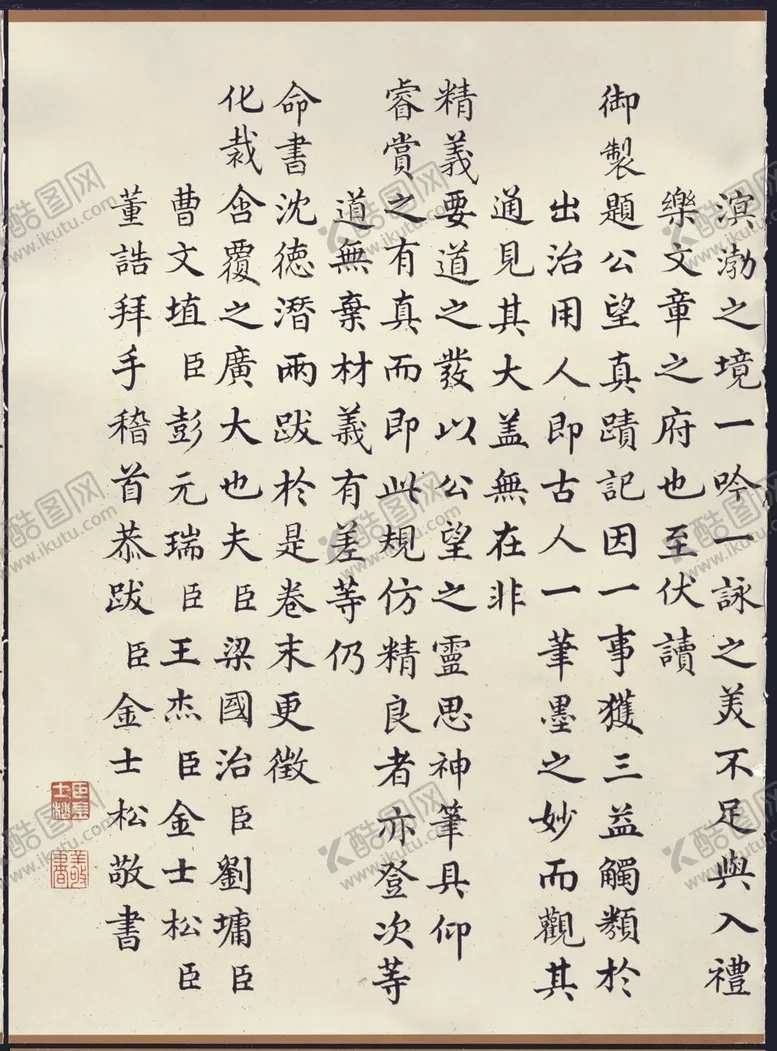 滨渤之境一吟一詠之美不足與入禮
樂文章之府也至伏讀
御製題公望真蹟記因一事獲三益觸類於
出治用人即古人一筆墨之妙而觀其
通見其大盖無在非
精義要道之發以公望之靈思神筆具仰
睿賞之有真而即此規仿精良者亦登次等
道無棄材義有差等仍
命書沈德潛兩跋於是卷末更徵
化裁含覆之廣大也夫臣梁國治臣劉墉臣
曹文埴臣彭元瑞臣王杰臣金士松臣
董誥拜手稽首恭跋臣金士松敬書
臣金士松
敬書
酷图网
www.ikutu.com